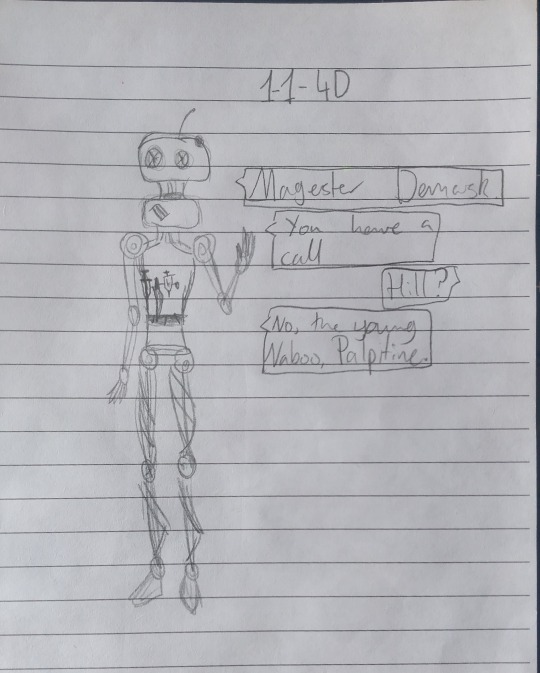 11-4D
Magester Damask
You have a
call
Hill?
No, the young
Naboo, Palpitine.